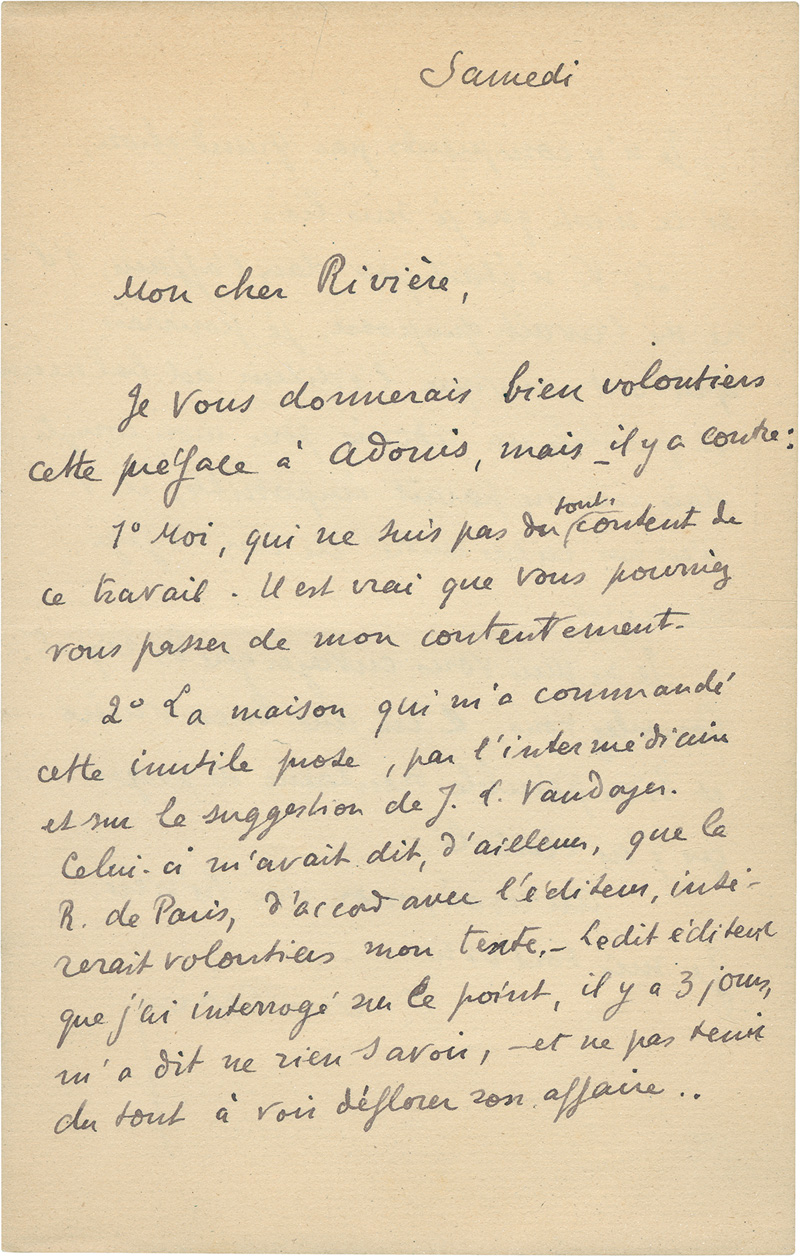 Samedi
Mon cher Rivière,
Je vous donnerais bien volontiers
cette préface à Adonis, mais _ il y a contre :
1º Moi, qui ne suis pas du tout content de
ce travail. Il est vrai que vous pourriez
vous passer de mon contentement.
2º La maison qui m'a commandé
cette inutile prose, par l'intermédiaire
et sur le suggestion de J. L. Vaudoyer.
Celui-ci m'avait dit, d'ailleurs, que la
R. de Paris, d'accord avec l'éditeur, insé-
rerait volontiers mon texte, - Ledit éditeur
que j'ai interrogé sur ce point, il y a 3 jours,
m'a dit ne rien savoir, - et ne pas tenir
du tout à voir déflorer son affaire ..